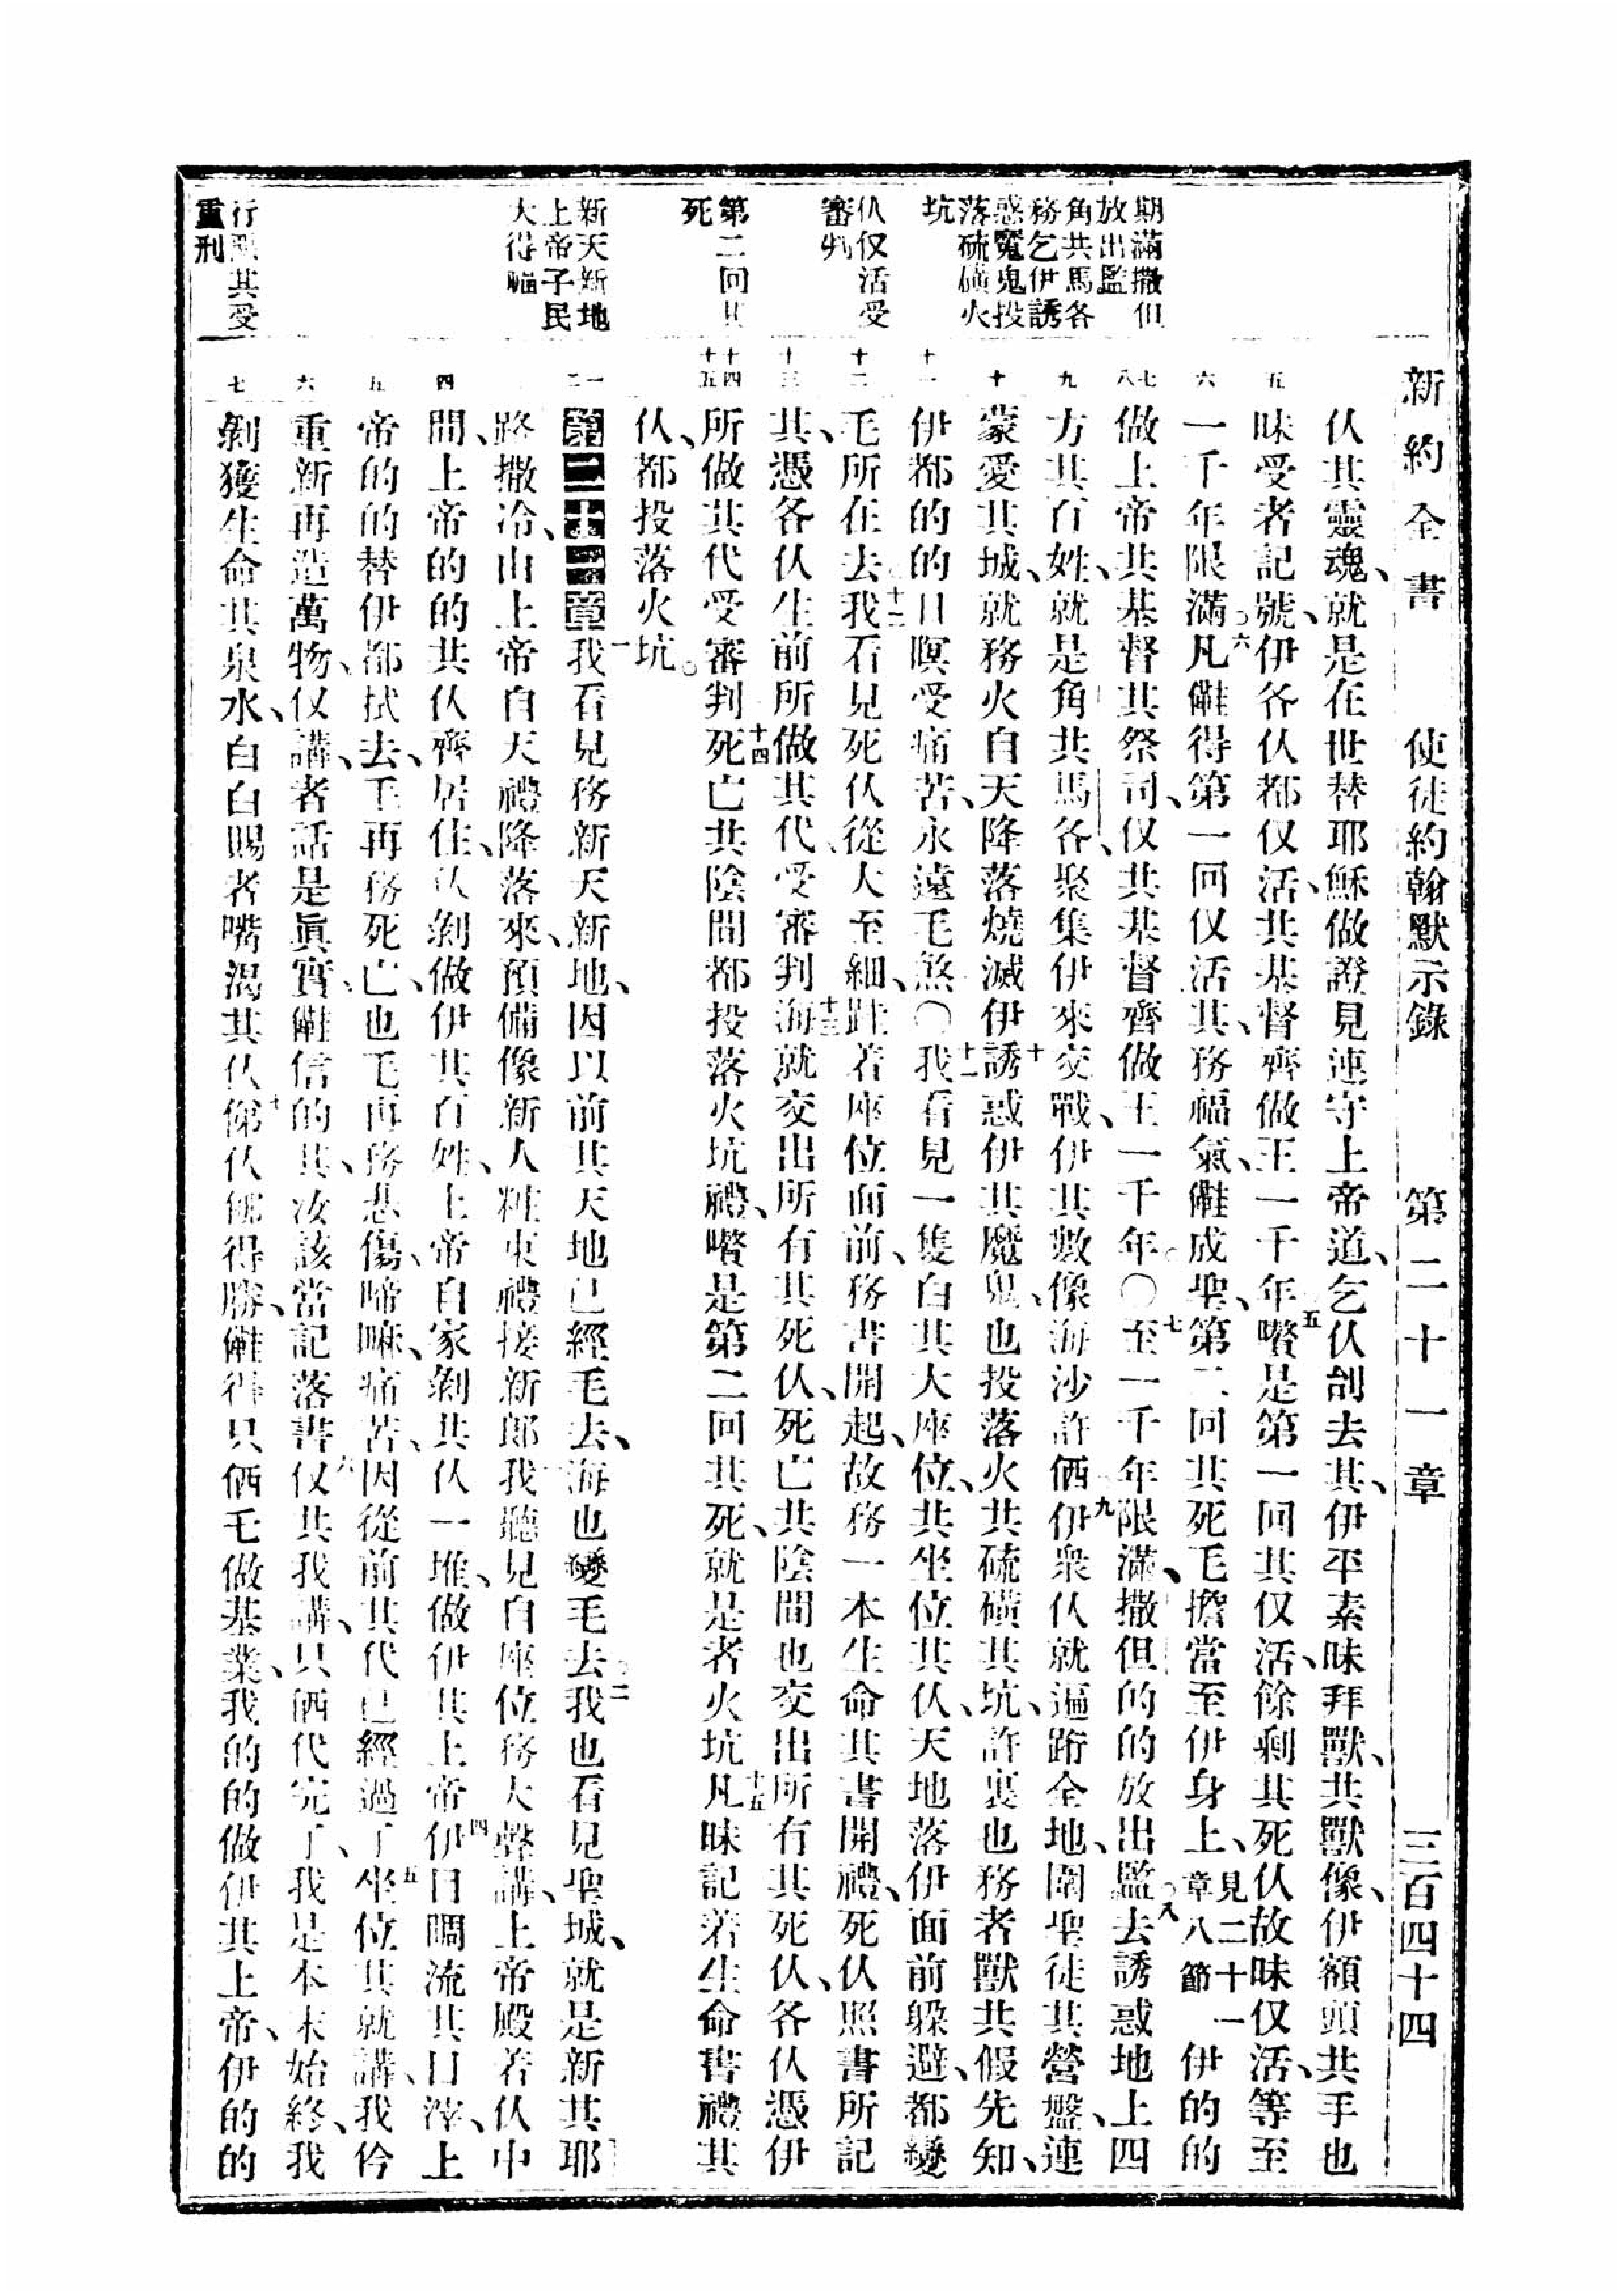 新約全書 使徒約翰默示錄 第二十一章 三百四十四
期滿撒但
放出監
角共馬各
務乞伊誘
惑魔鬼投
落硫磺火
坑
仈仅活受
審判
第二回其
死
新天新地
上帝子民
大得
行 其受
重刑
五
六
七
八
九
十
十一
十二
十三
十四
十五
一
二
四
五
六
七
仈其靈魂、就是在世替耶穌做證見連守上帝道、乞仈刣去其、伊平素昧拜獸、共獸像、伊額頭共手也
昧受者記號、伊各仈都仅活、共基督齊做王一千年五嚽是第一回其仅活、餘剩其死仈故昧仅活、等至
一千年限滿六凡㒕得第一回仅活其、務福氣、㒕成聖、第二回其死毛擔當至伊身上、見二十一章八節伊的的
做上帝共基督其祭司、仅共基督齊做王一千年○七至一千年限滿、撒但的的放出監八去誘惑地上四
方其百姓、就是角共馬各、聚集伊來交戰、伊其數像海沙許㑚九伊眾仈就遍跻全地、圍聖徒其營盤、連
蒙愛其城、就務火自天降落燒滅伊十誘惑伊其魔鬼、也投落火共硫磺其坑、許裏也務者獸共假先知、
伊都的的日暝受痛苦、永遠毛煞○十一我看見一隻白其大座位、共坐位其仈、天地落伊面前躲避、都變
毛所在去十二我看見死仈從大至細、跬若座位面前、務書開起、故務一本生命其書開禮、死仈照書所記
其、憑各仈生前所做其代、受審判十三海就交出所有其死仈、死亡共陰間也交出所有其死仈、各仈憑伊
所做其代受審判十四死亡共陰間都投落火坑禮、嚽是第二回其死、就是者火坑十五凡昧記若生命書禮其
仈、都投落火坑。
第二十一章一我看見務新天新地、因以前其天地已經毛去、海也變毛去二我也看見聖城、就是新其耶
路撒冷、由上帝自天禮降落來、預備像新人粧束禮接新郎 我聽見自座位務大聲講、上帝殿若仈中
間、上帝的的共仈齊居住、仈剝做伊其百姓、上帝自家剝共仈一堆、做伊其上帝四伊目睭流其目滓、上
帝的的替伊都拭去、毛再務死亡、也毛再務悲傷、啼嘛、痛苦、因從前其代已經過了五坐位其就講、我仱
重新再造萬物、仅講、者話是眞實、㒕信的其、汝該當記落書六仅共我講、只㑚代完了、我是本末始終、我
剝獲生命其泉水、白白賜者嘴渴其仈 七 仈 得勝、㒕得只㑚毛做基業、我的的做伊其上帝、伊的的